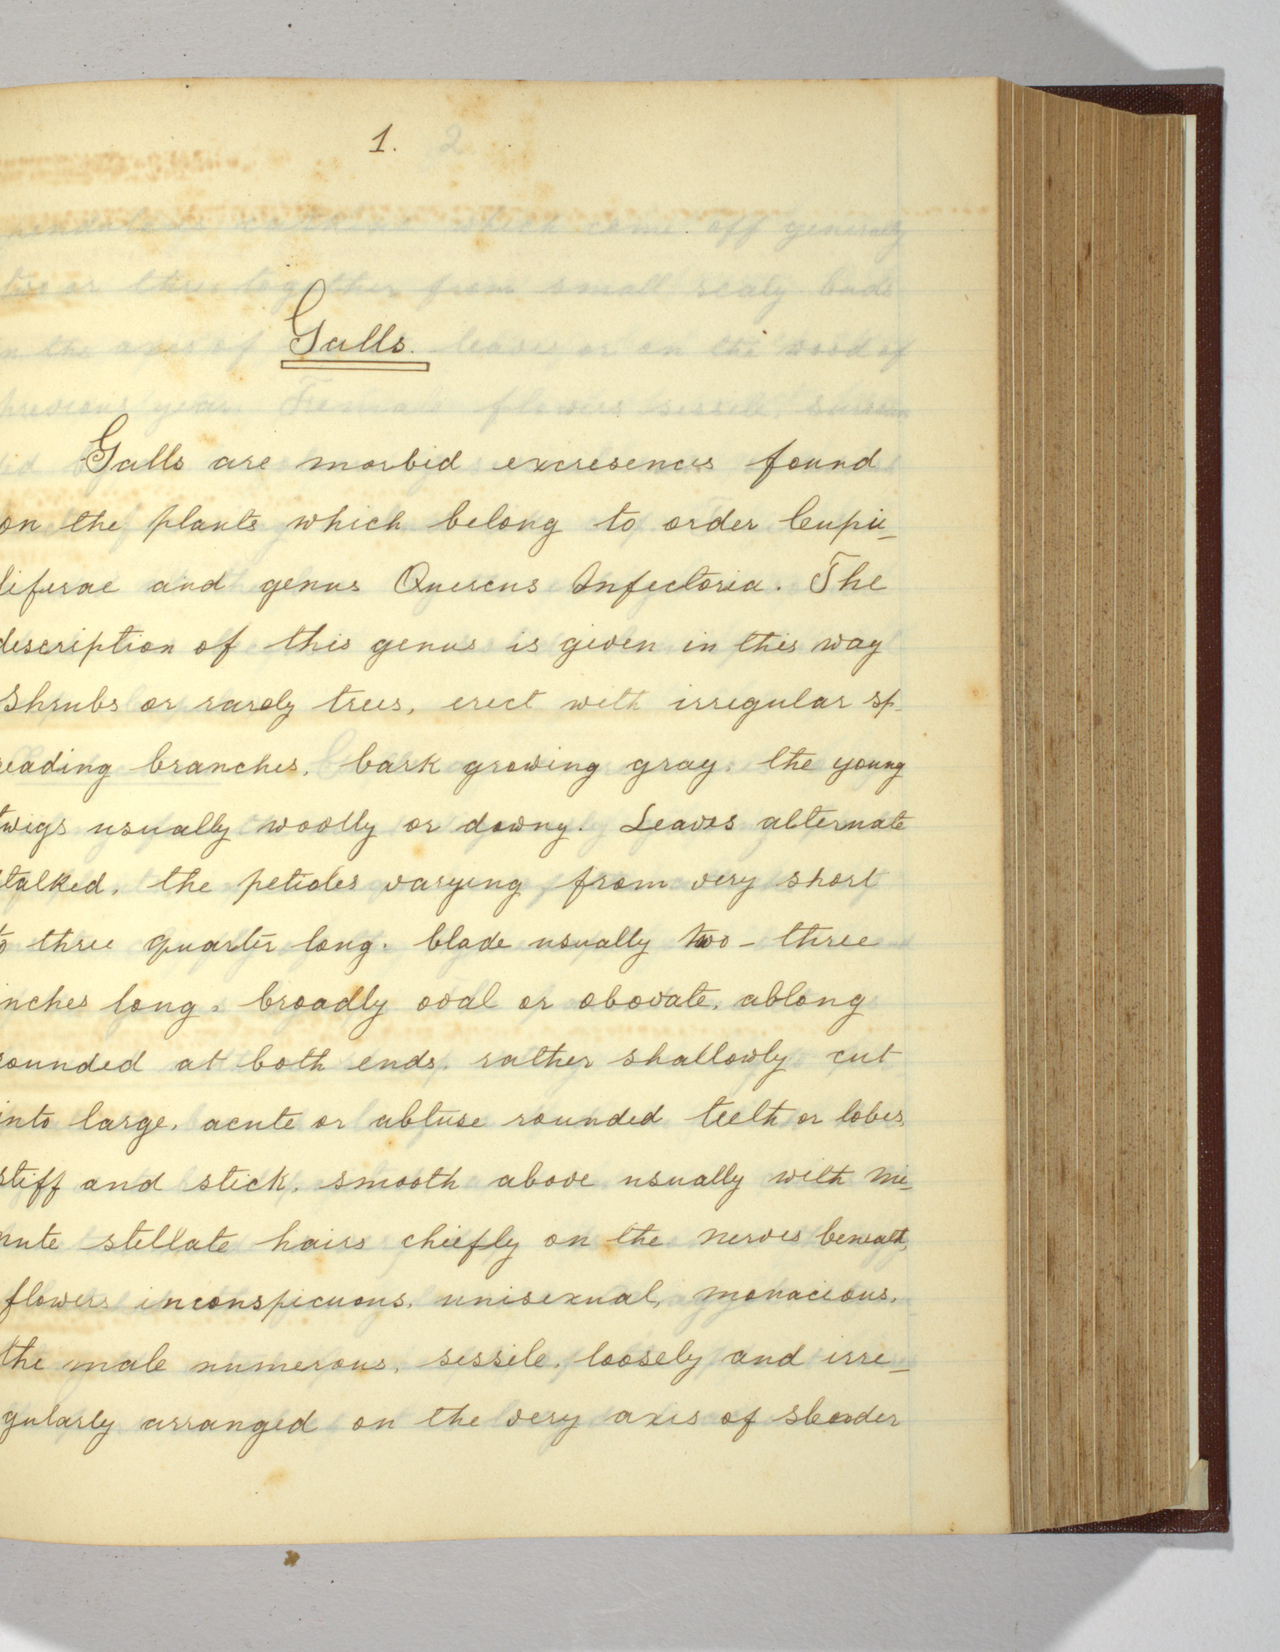 1.
Galls.
Galls are morbid excresences found
on the plants which belong to order Cupu_
liferae and genus Quercus Infectoria. The
description of this genus is given in this way
Shrubs or rarely trees, erect with irregular sp_
reading branches, bark growing gray, the young
twigs usually woolly or downy. Leaves alternate
stalked, the petioles varying from very short
to three quarter long, blade usually two - three
inches long, broadly oval or obovate, ablong
rounded at both ends, rather shallowly cut
into large, acute or abtuse rounded teeth or lobes
stiff and stick, smooth above usually with mi_
nute stellate hairs chiefly on the nerves beneath,
flowers inconspicuous, unisexual, monacious,
the male numerous, sessile, loosely and irre_
gularly arranged on the very axis of slender